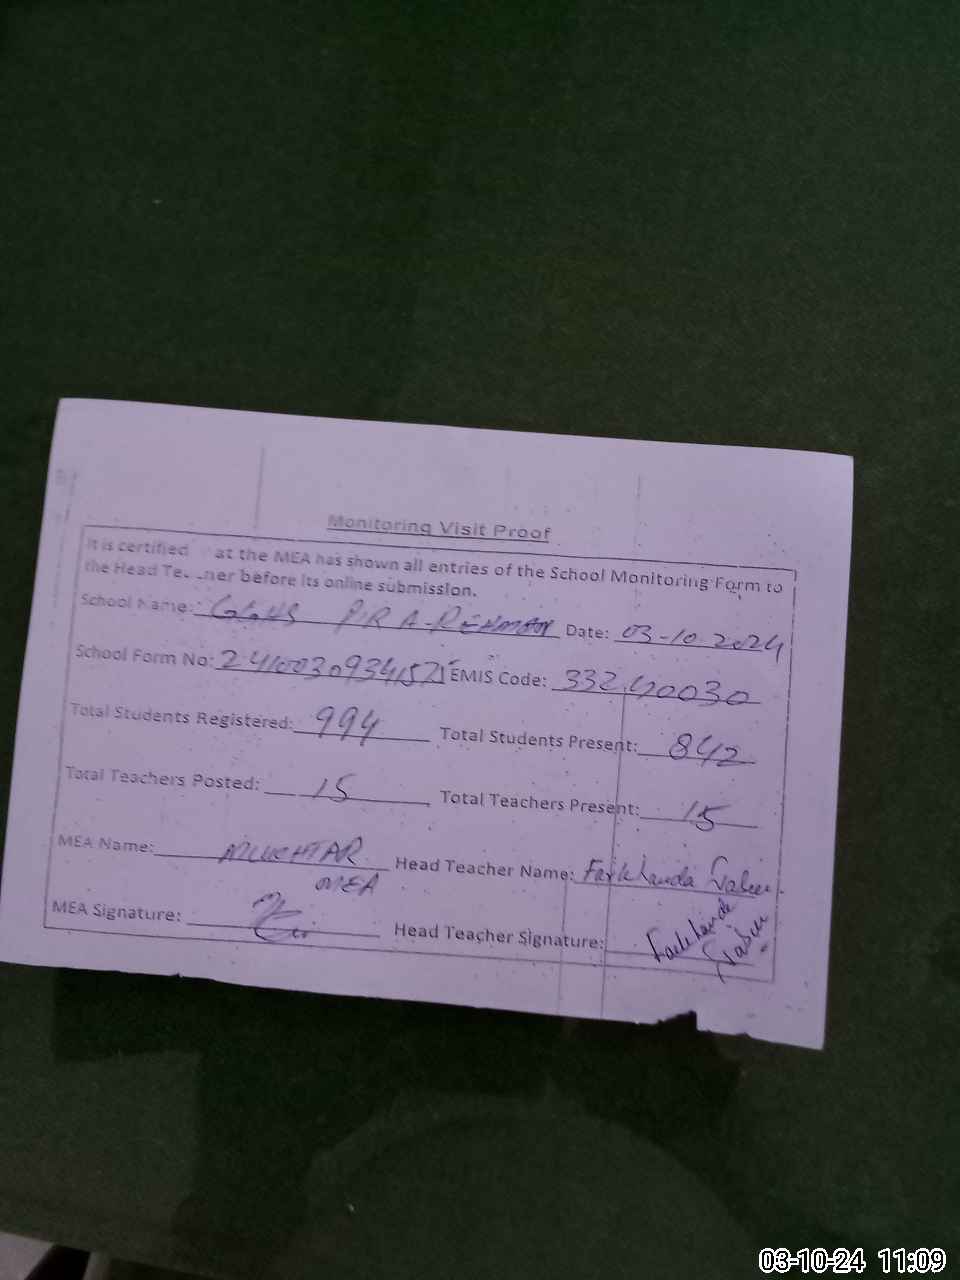 Monitoring Visit Proof
It is certified at the MEA has shown all entries of the School Monitoring Form to
the Head Te..ner before its online submission.
School Name: GGHS PIR A-REHMAN Date: 03-10-2024
School Form No: EMIS Code: 33240030
Total Students Registered: 994 Total Students Present: 842
Total Teachers Posted: 15 Total Teachers Present: 15
MEA Name: MUKHTAR Head Teacher Name: Farkhanda
MEA
MEA Signature: Head Teacher Signature: Farkhanda
03-10-24 11:09